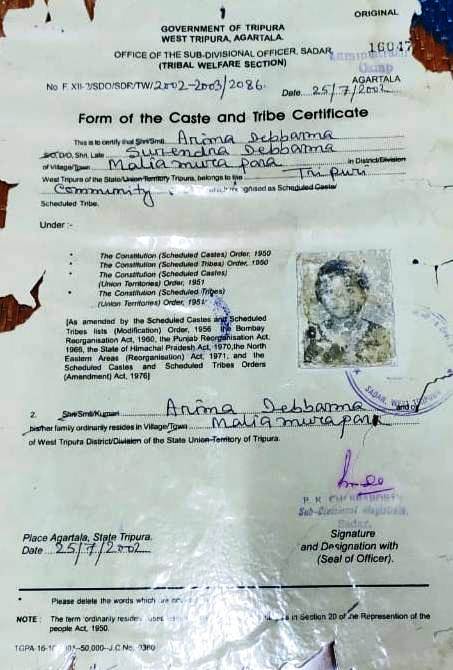 1
ORIGINAL
GOVERNMENT OF TRIPURA
WEST TRIPURA, AGARTALA.
OFFICE OF THE SUB-DIVISIONAL OFFICER, SADAR,
(TRIBAL WELFARE SECTION)
16047
Camp
AGARTALA
No F. XII-2/SDO/SDR/TW/2002-2003/2086.
Date 25/7/2002
Form of the Caste and Tribe Certificate
This is to certify that Shri/Smti Arima Debbarma
S/O, D/O, Shri, Late Surendra Debbarma
of Village/Town Maliamura para in District/Division
West Tripura of the State/Union Territory Tripura, belongs to the Tripuri
Community recognised as Scheduled Caste/
Scheduled Tribe.
Under :-
* The Constitution (Scheduled Castes) Order, 1950
* The Constitution (Scheduled Tribes) Order, 1950
* The Constitution (Scheduled Castes)
(Union Territories) Order, 1951
* The Constitution (Scheduled Tribes)
(Union Territories) Order, 1951
[As amended by the Scheduled Castes and Scheduled
Tribes lists (Modification) Order, 1956 the Bombay
Reorganisation Act, 1960, the Punjab Reorganisation Act,
1966, the State of Himachal Pradesh Act, 1970, the North
Eastern Areas (Reorganisation) Act, 1971, and the
Scheduled Castes and Scheduled Tribes Orders
(Amendment) Act, 1976]
SADAR, WEST TRIPURA
2. Shri/Smti/Kumari Arima Debbarma and/or
his/her family ordinarily resides in Village/Town Maliamura para
of West Tripura District/Division of the State Union Territory of Tripura.
Sub-Divisional Magistrate,
Sadar.
Place Agartala, State Tripura.
Date 25/7/2002
Signature
and Designation with
(Seal of Officer).
* Please delete the words which are
NOTE : The term 'ordinarily resides' used in Section 20 of the Represention of the
people Act, 1950.
TGPA-16-50,000-J.C.No. 9360